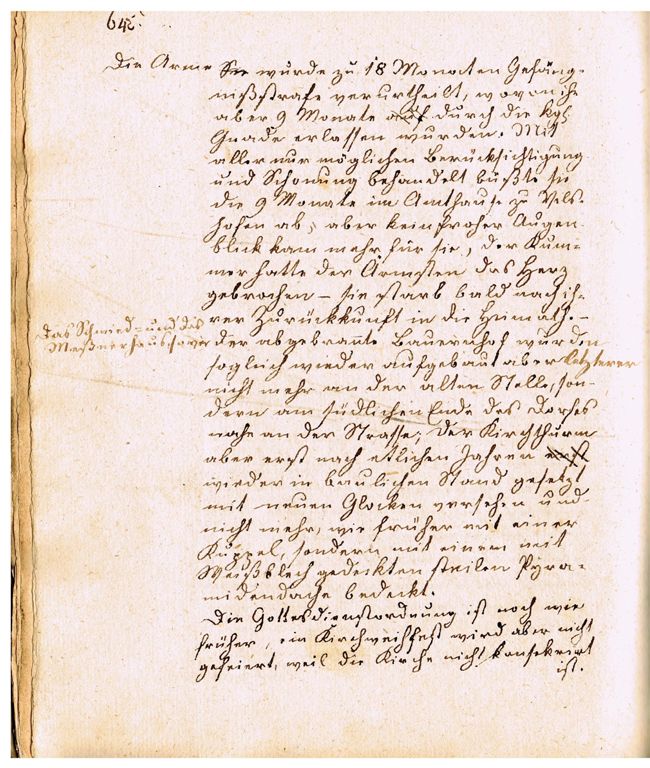 64.
Die Arme Sie wurde zu 18 Monaten Gefäng-
nißstrafe verurtheilt, wovon ihr
aber 9 Monate auf durch die kgl.
Gnade erlassen wurden. Mit
aller nur möglichen Berücksichtigung
und Schonung behandelt büßte sie
die 9 Monate im Amthause zu Vils-
hofen ab, aber kein froher Augen
blick kam mehr für sie, der Kum-
mer hatte der Ärmsten das Herz
gebrochen – sie starb bald nach ih-
rer Zurückkunft in die Heimath. –
Das Schmied- und das
Meßnerhaus sowie
der abgebrannte Bauernhof wurden
sogleich wieder aufgebaut aber letzterer
nicht mehr an der alten Stelle, son-
dern am südlichen Ende des Dorfes
nahe an der Strasse; der Kirchthurm
aber erst nach etlichen Jahren erst
wieder in baulichen Stand gesetzt
mit neuen Glocken versehen und
nicht mehr, wie früher mit einer
Kuppel, sondern mit einem mit
Weißblech gedeckten steilen Pyra-
midendache bedeckt.
Die Gottesdienstordnung ist noch wie
früher, ein Kirchweihfest wird aber nicht
gefeiert, weil die Kirche nicht konsekrirt
ist.